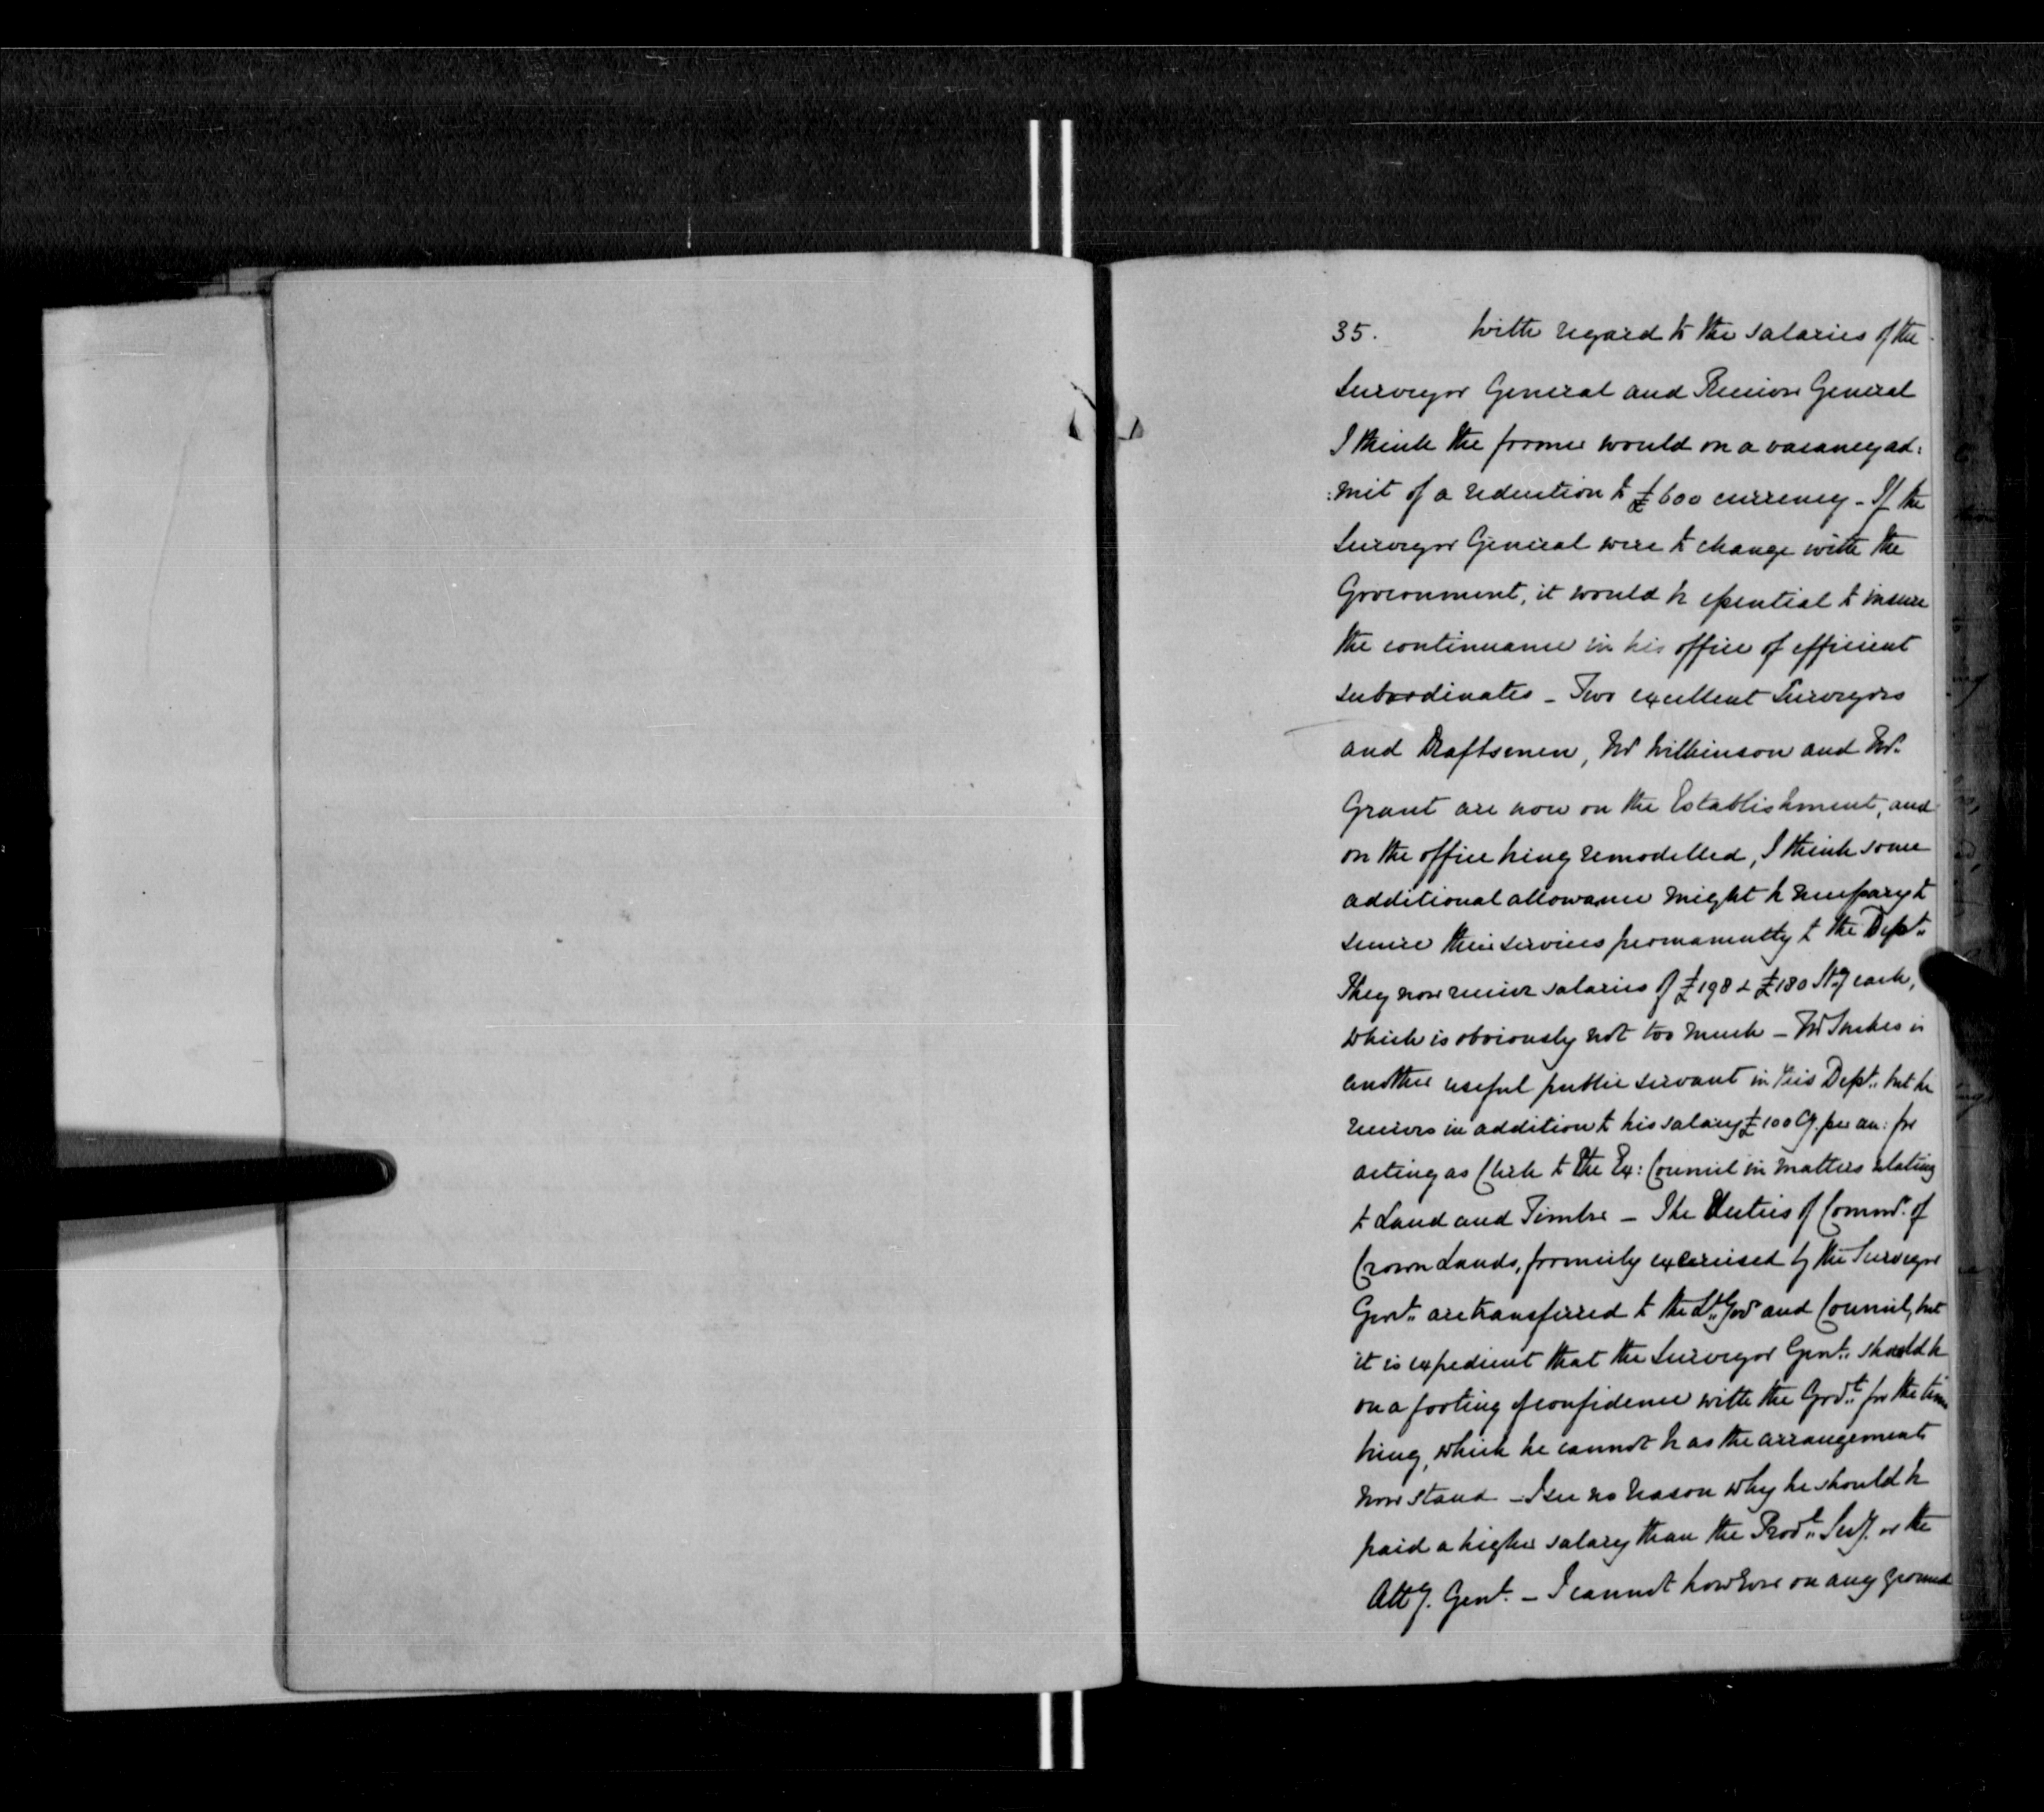 35. With regard to the salaries of the
Surveyor General and Receiver General
I think the former would on a vacancy ad:
:mit of a reduction to £600 currency - If the
Surveyor General were to change with the
Government, it would be essential to insure
the continuance in his office of efficient
subordinates - Two excellent Surveyors
and Draftsmen, Mr Wilkinson and Mr.
Grant are now on the Establishment, and
on the office being remodelled, I think some
additional allowance might be necessary to
secure their services permanently to the Dept.
They now receive salaries of £198 & £180 Stg each,
which is obviously not too much - Mr is
another useful public servant in this Dept. but he
receives in addition to his salary £100 Cy. per an: for
acting as Clerk to the Ex: Council in matters relating
to Land and Timber - The Duties of Commr. of
Crown Lands, formerly exercised by the Surveyor
Genl. are transferred to the Lt. Govr and Council, but
it is expedient that the Surveyor Genl. should be
on a footing of confidence with the Govt. for the time
being, which he cannot be as the arrangements
now stand - I see no reason why he should be
paid a higher salary than the Provl. Secy. or the
Atty. Genl. - I cannot however on any ground